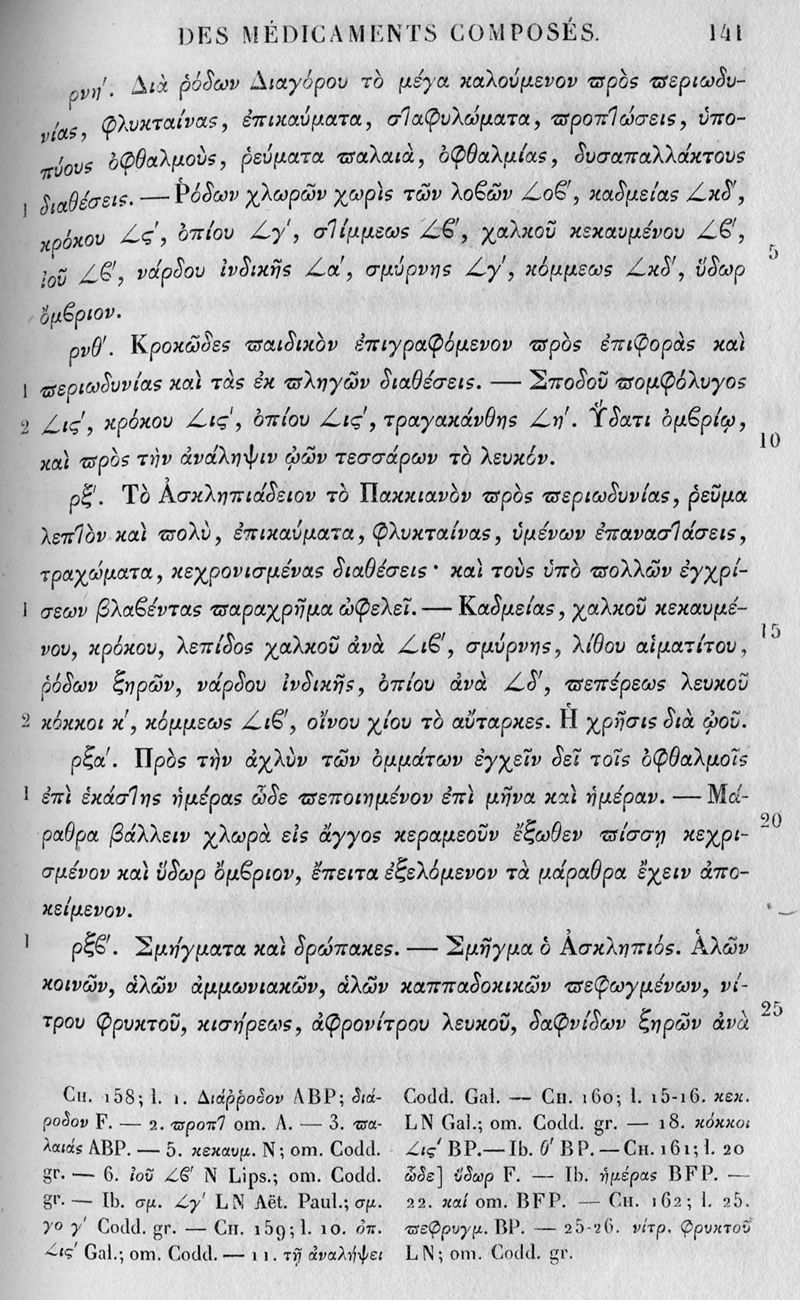 DES MÉDICAMENTS COMPOSÉS. 141
ρνη'. Διὰ ῥόδων Διαγόρου τὸ μέγα καλούμενον πρὸς περιωδυ-
νίας, φλυκταίνας, ἐπικαύματα, σταφυλώματα, προπτώσεις, ὑπο-
πύους ὀφθαλμοὺς, ῥεύματα παλαιὰ, ὀφθαλμίας, δυσαπαλλάκτους
1 διαθέσεις. — Ῥόδων χλωρῶν χωρὶς τῶν λοβῶν 𐅻οβ', καδμείας 𐅻κδ',
κρόκου 𐅻ϛ', ὀπίου 𐅻γ', στίμμεως 𐅻β', χαλκοῦ κεκαυμένου 𐅻β', 5
ἰοῦ 𐅻β', νάρδου ἰνδικῆς 𐅻α', σμύρνης 𐅻γ', κόμμεως 𐅻κδ', ὕδωρ
ὄμβριον.
ρνθ'. Κροκῶδες παιδικὸν ἐπιγραφόμενον πρὸς ἐπιφορὰς καὶ
1 περιωδυνίας καὶ τὰς ἐκ πληγῶν διαθέσεις. — Σποδοῦ πομφόλυγος
2 𐅻ιϛ', κρόκου 𐅻ιϛ', ὀπίου 𐅻ιϛ', τραγακάνθης 𐅻η'. Ὕδατι ὀμβρίῳ, 10
καὶ πρὸς τὴν ἀνάληψιν ᾠῶν τεσσάρων τὸ λευκόν.
ρξ'. Τὸ Ἀσκληπιάδειον τὸ Πακκιανὸν πρὸς περιωδυνίας, ῥεῦμα
λεπτὸν καὶ πολὺ, ἐπικαύματα, φλυκταίνας, ὑμένων ἐπαναστάσεις,
τραχώματα, κεχρονισμένας διαθέσεις · καὶ τοὺς ὑπὸ πολλῶν ἐγχρί-
1 σεων βλαβέντας παραχρῆμα ὠφελεῖ. — Καδμείας, χαλκοῦ κεκαυμέ-
νου, κρόκου, λεπίδος χαλκοῦ ἀνὰ 𐅻ιβ', σμύρνης, λίθου αἱματίτου, 15
ῥόδων ξηρῶν, νάρδου ἰνδικῆς, ὀπίου ἀνὰ 𐅻δ', πεπέρεως λευκοῦ
2 κόκκοι κ', κόμμεως 𐅻ιβ', οἴνου χίου τὸ αὔταρκες. Ἡ χρῆσις διὰ ᾠοῦ.
ρξα'. Πρὸς τὴν ἀχλὺν τῶν ὀμμάτων ἐγχεῖν δεῖ τοῖς ὀφθαλμοῖς
1 ἐπὶ ἑκάστης ἡμέρας ὧδε πεποιημένον ἐπὶ μῆνα καὶ ἡμέραν. — Μά-
ραθρα βάλλειν χλωρὰ εἰς ἄγγος κεραμεοῦν ἔξωθεν πίσσῃ κεχρι- 20
σμένον καὶ ὕδωρ ὄμβριον, ἔπειτα ἐξελόμενον τὰ μάραθρα ἔχειν ἀπο-
κείμενον.
1 ρξβ'. Σμήγματα καὶ δρώπακες. — Σμῆγμα ὁ Ἀσκληπιός. Ἁλῶν
κοινῶν, ἁλῶν ἀμμωνιακῶν, ἁλῶν καππαδοκικῶν πεφωγμένων, νί-
τρου φρυκτοῦ, κισήρεως, ἀφρονίτρου λευκοῦ, δαφνίδων ξηρῶν ἀνὰ 25
CH. 158; l. 1. Διάῤῥοδον ABP; διά-
ροδον F. — 2. προπτ om. A. — 3. πα-
λαιάς ABP. — 5. κεκαυμ. N; om. Codd.
gr. — 6. ἰοῦ 𐅻β' N Lips.; om. Codd.
gr. — Ib. σμ. 𐅻γ' LN Aët. Paul.; σμ.
γο γ' Codd. gr. — CH. 159; l. 10. ὀπ.
𐅻ιϛ' Gal.; om. Codd. — 11. τῇ ἀναλήψει
Codd. Gal. — CH. 160; l. 15-16. κεκ.
LN Gal.; om. Codd. gr. — 18. κόκκοι
𐅻ιϛ' BP. — Ib. θ' BP. — CH. 161; l. 20
ὧδε] ὕδωρ F. — Ib. ἡμέρας BFP. —
22. καί om. BFP. — CH. 162; l. 25.
πεφρυγμ. BP. — 25-26. νίτρ. φρυκτοῦ
LN; om. Codd. gr.